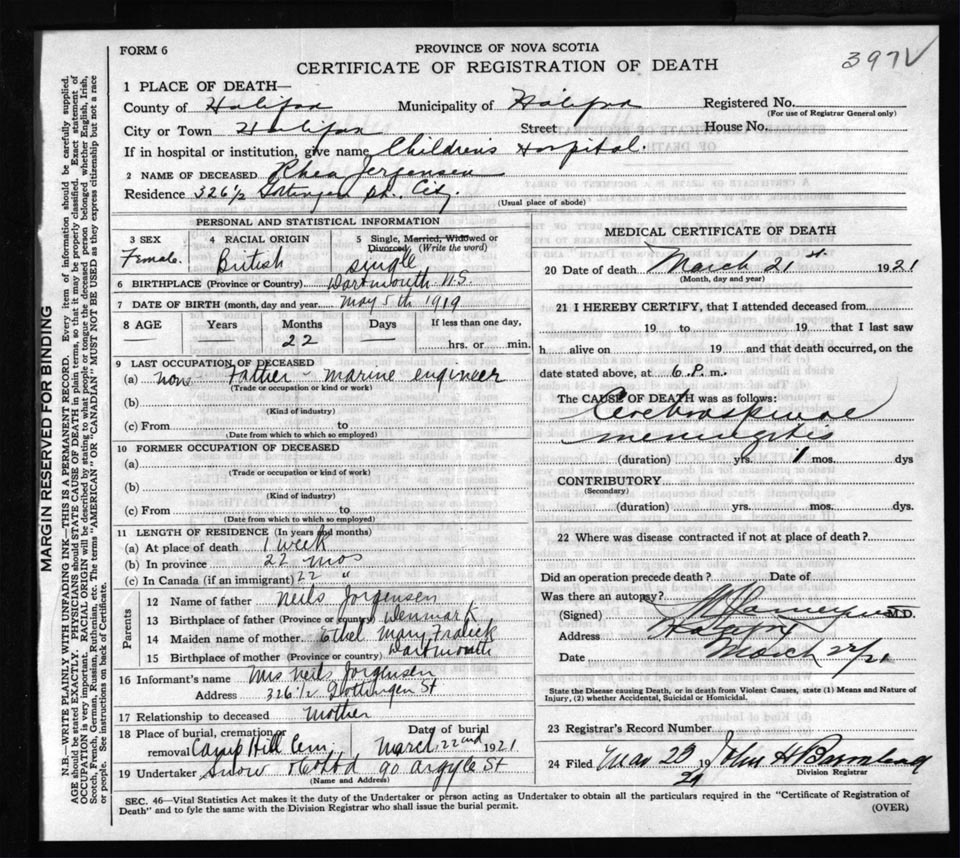 397 V
FORM 6
PROVINCE OF NOVA SCOTIA
CERTIFICATE OF REGISTRATION OF DEATH
1 PLACE OF DEATH—
County of Halifax Municipality of Halifax Registered No.
(For use of Registrar General only)
City or Town Halifax Street House No.
If in hospital or institution, give name Childrens Hospital.
2 NAME OF DECEASED Rhea Jorgensen
Residence 326 1/2 Gottingen St. City.
(Usual place of abode)
PERSONAL AND STATISTICAL INFORMATION
3 SEX 4 RACIAL ORIGIN 5 Single, Married, Widowed or Divorced (Write the word)
Female. British single
6 BIRTHPLACE (Province or Country) Dartmouth N.S.
7 DATE OF BIRTH (month, day and year) May 5th 1919
8 AGE Years Months Days If less than one day,
22 hrs. or min.
9 LAST OCCUPATION OF DECEASED
(a) none Father - marine engineer
(Trade or occupation or kind of work)
(b)
(Kind of industry)
(c) From to
(Date from which to which so employed)
10 FORMER OCCUPATION OF DECEASED
(a)
(Trade or occupation, or kind of work)
(b)
(Kind of industry)
(c) From to
(Date from which to which so employed)
11 LENGTH OF RESIDENCE (In years and months)
(a) At place of death 1 week
(b) In province 22 mos
(c) In Canada (if an immigrant) 22 "
Parents
12 Name of father Neils Jorgensen
13 Birthplace of father (Province or country) Denmark
14 Maiden name of mother Ethel Mary Fralick
15 Birthplace of mother (Province or country) Dartmouth
16 Informant's name Mrs Neils Jorgensen
Address 326 1/2 Gottingen St
17 Relationship to deceased mother
18 Place of burial, cremation or removal Camp Hill Cem. Date of burial March 22nd 1921
19 Undertaker Snow 90 Argyle St
(Name and Address)
MEDICAL CERTIFICATE OF DEATH
20 Date of death March 21st 1921
(Month, day and year)
21 I HEREBY CERTIFY, that I attended deceased from
19 to 19 that I last saw
h alive on 19 and that death occurred, on the
date stated above, at 6. P. m.
The CAUSE OF DEATH was as follows:
Cerebrospinal
meningitis
(duration) yrs. 1 mos. dys
CONTRIBUTORY
(Secondary)
(duration) yrs. mos. dys.
22 Where was disease contracted if not at place of death?
Did an operation precede death? Date of
Was there an autopsy?
(Signed) M.D.
Address Halifax
Date March 22/21
State the Disease causing Death, or in death from Violent Causes, state (1) Means and Nature of
Injury, (2) whether Accidental, Suicidal or Homicidal.
23 Registrar's Record Number
24 Filed Mar 19 John H
Division Registrar
SEC. 46—Vital Statistics Act makes it the duty of the Undertaker or person acting as Undertaker to obtain all the particulars required in the "Certificate of Registration of
Death" and to fyle the same with the Division Registrar who shall issue the burial permit.
(OVER)
MARGIN RESERVED FOR BINDING
N.B.—WRITE PLAINLY WITH UNFADING INK—THIS IS A PERMANENT RECORD. Every item of information should be carefully supplied.
AGE should be stated EXACTLY. PHYSICIANS should STATE CAUSE OF DEATH in plain terms, so that it may be properly classified. Exact statement of
OCCUPATION is very important. RACIAL ORIGIN will be described by stating to what people or tongue the deceased person belonged whether English, Irish,
Scotch, French, German, Russian, Ruthenian, etc. The terms "AMERICAN" OR "CANADIAN" MUST NOT BE USED as they express citizenship but not a race
or people. See instructions on back of Certificate.